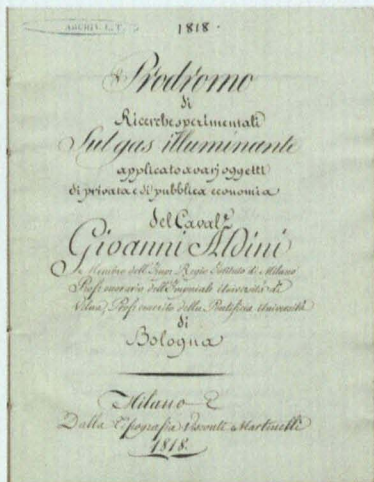 ARCHIV. I. T.
1818.
Prodromo
di
Ricerche sperimentali
Sul gas illuminante
applicato a varj oggetti
di privata e di pubblica economia
del Cavalr
Gioanni Aldini
Membro dell' Imp. Regio Istituto di Milano
Prof. onorario dell' Imperiale Università di
Vilna, Prof. emerito della Pontificia Università
di
Bologna
Milano
Dalla Tipografia Visconti Martinelli
1818.